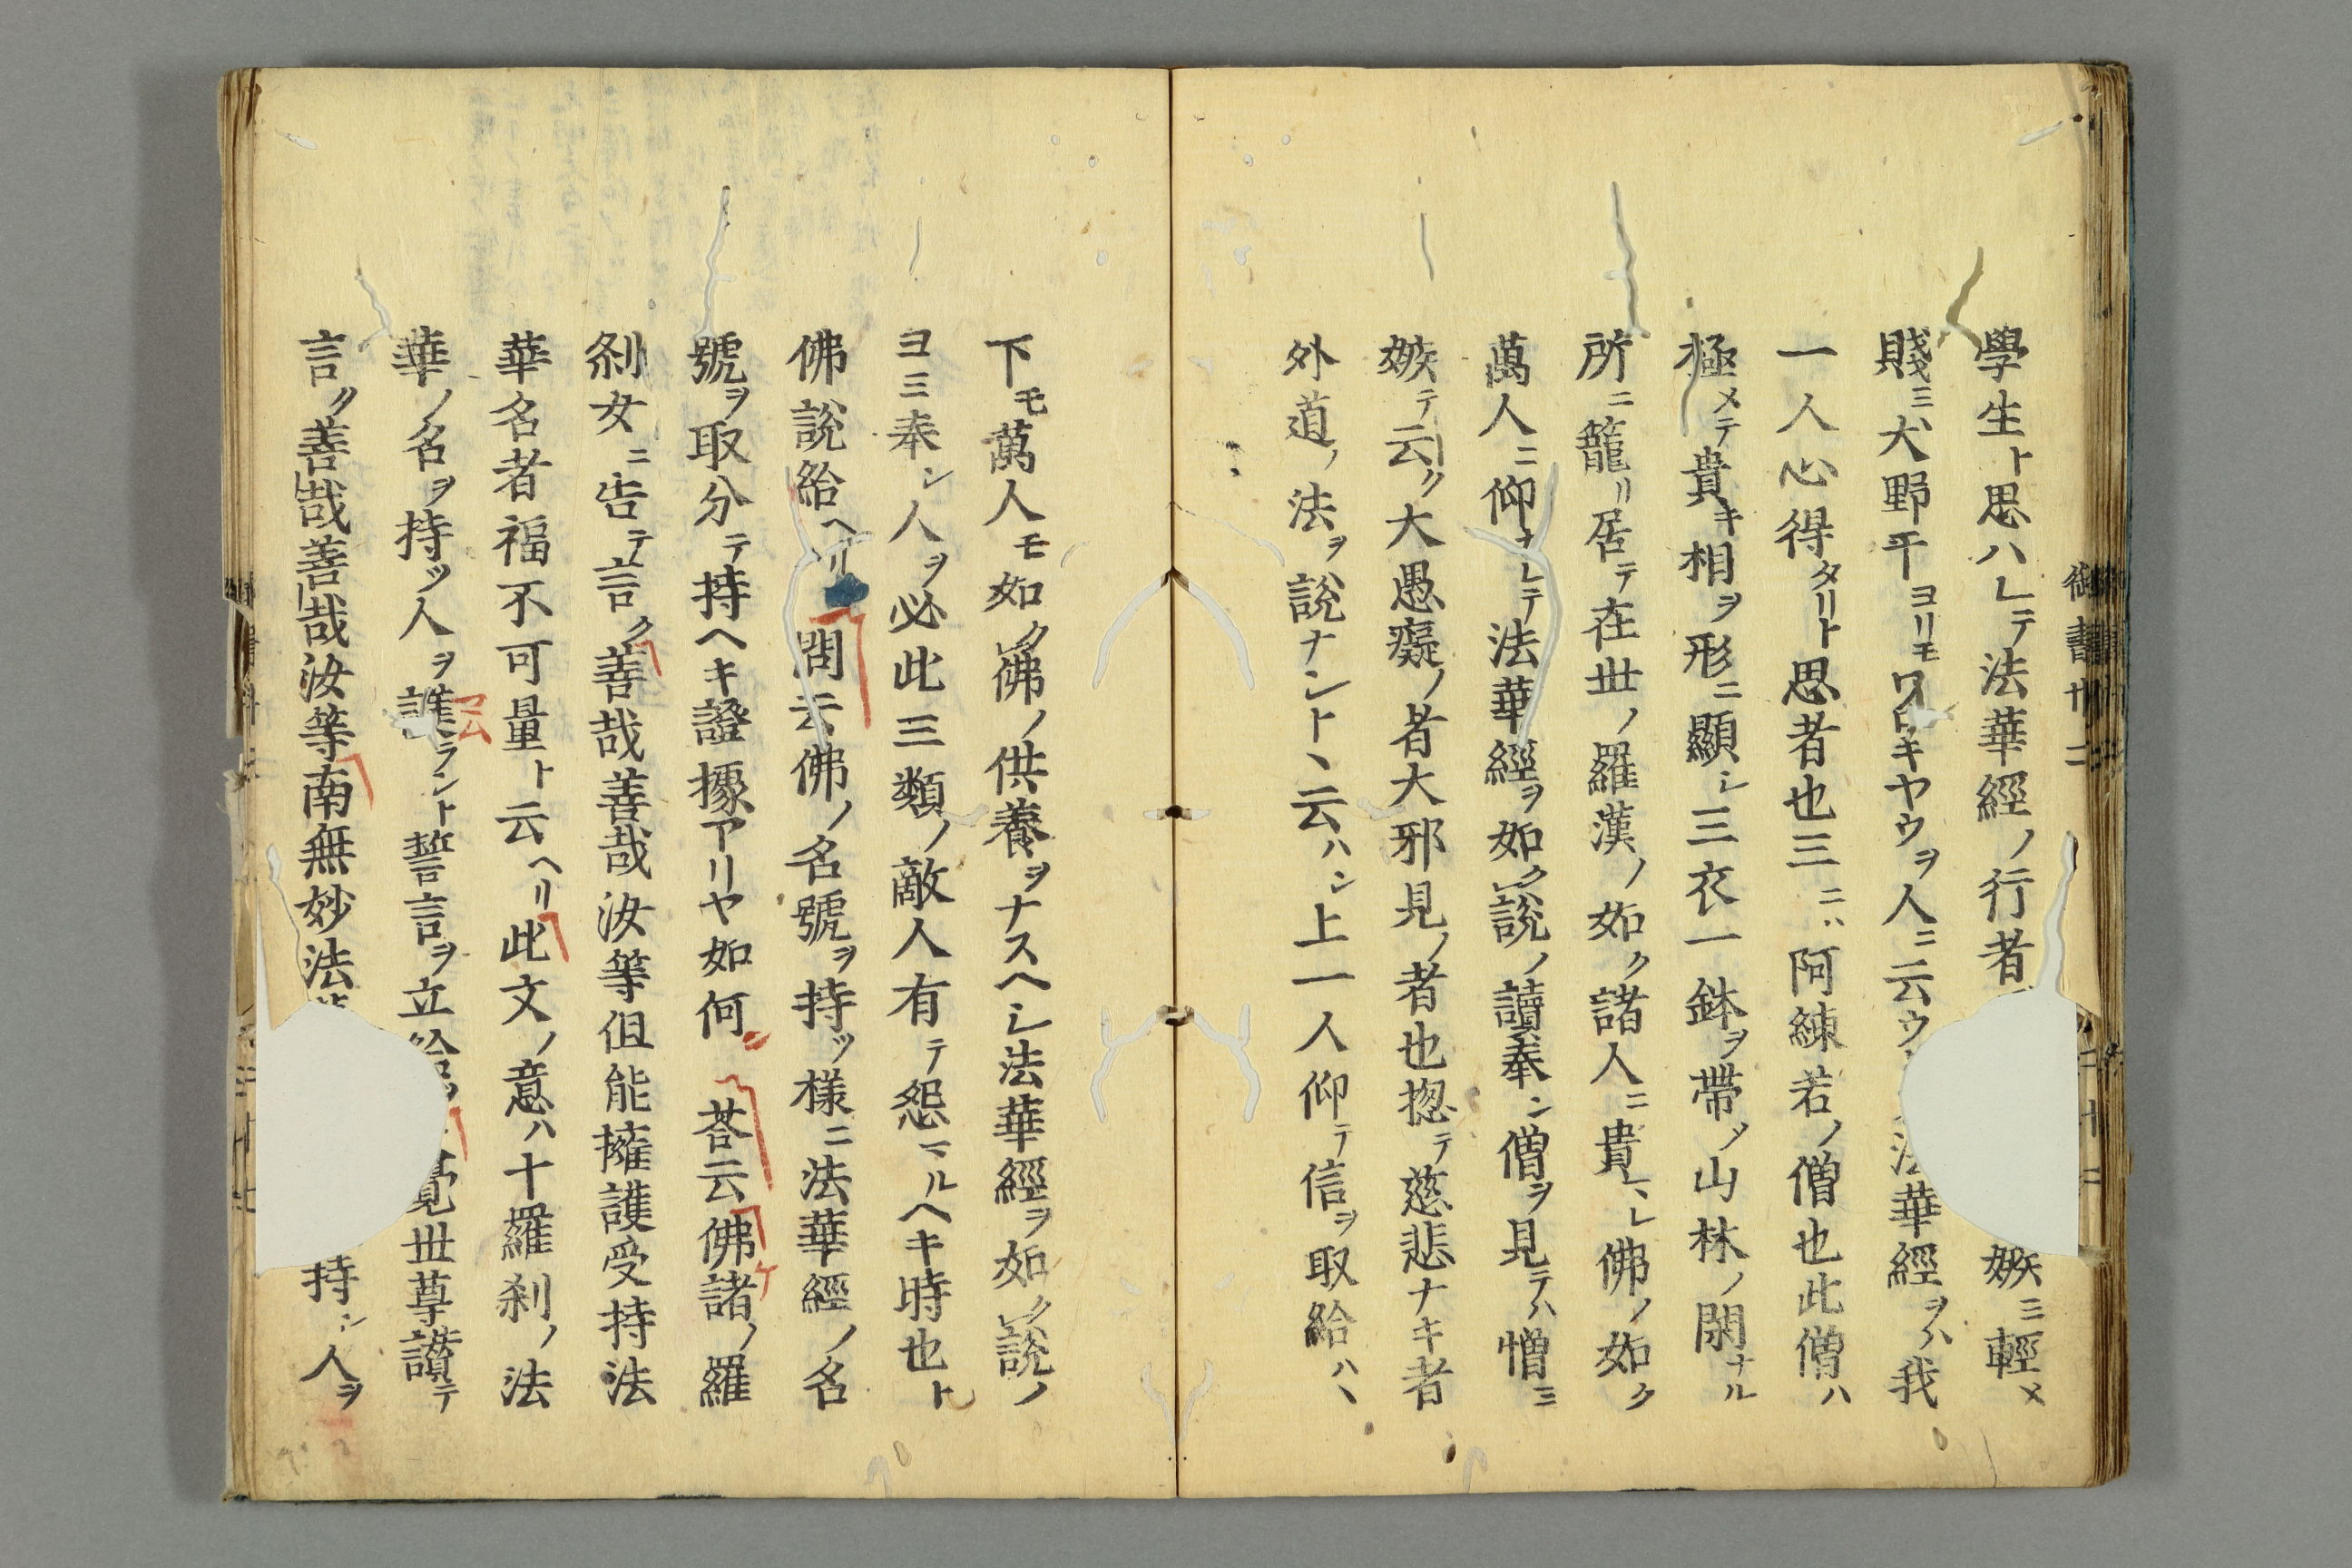 學生ト思ハレテ法華經ノ行者
嫉ミ輕メ
賤ミ犬野干ヨリモワロキヤウヲ人ニ云ウ
法華經ヲハ我
一人心得タリト思者也三ニハ阿練若ノ僧也此僧ハ
極メテ貴キ相ヲ形ニ顯シ三衣一鉢ヲ帶ノ山林ノ閑ナル
所ニ籠リ居テ在世ノ羅漢ノ如ク諸人ニ貴レヽ佛ノ如ク
萬人ニ仰ナレテ法華經ヲ如ク説ノ讀奉ン僧ヲ見テハ憎ミ
嫉テ云ク大愚癡ノ者大邪見ノ者也揔テ慈悲ナキ者
外道ノ法ヲ説ナントヽ云ハン上一人仰テ信ヲ取給ハヽ
御書卅二
下モ萬人モ如ク佛ノ供養ヲナスヘシ法華經ヲ如ク説ノ
ヨミ奉ン人ヲ必此三類ノ敵人有テ怨マルヘキ時也ト
佛説給ヘリ 問云佛ノ名號ヲ持ツ樣ニ法華經ノ名
號ヲ取分テ持ヘキ證據アリヤ如何 荅云佛諸ノ羅
刹女ニ告テ言ク善哉善哉汝等但能擁護受持法
華名者福不可量ト云ヘリ此文ノ意ハ十羅刹ノ法
華ノ名ヲ持ツ人ヲ護ラント誓言ヲ立給
覺世尊讃テ
言ク善哉善哉汝等南無妙法
持ン人ヲ